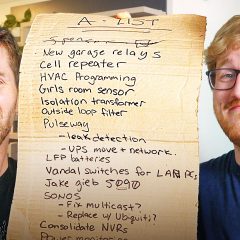 A-LIST
New garage relays
Cell repeater
HVAC Programming
Girls room sensor
Isolation transformer
Outside loop filter
Pulseway
- leak detection
- UPS move + network
LFP batteries
Vandal switches for LAN PCs
Jake gieb 5090
SONOS
- Fix multicast?
- Replace w/ Ubiquiti?
Consolidate NVRs
Power monitoring